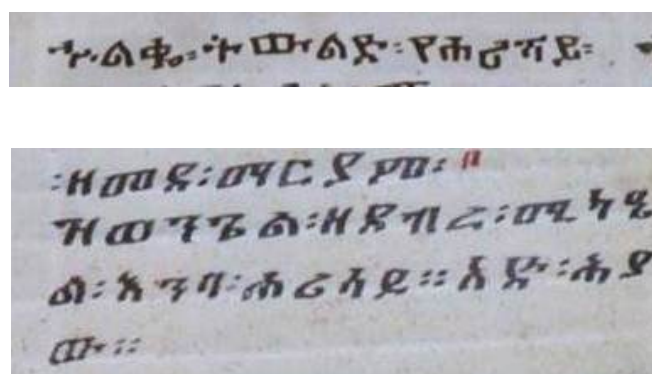 ኍልቈ፡ትውልድ፡የሐሬሻይ፡
፡ዘመደ፡ማርያም፡
ዝወንጌል፡ዘደብረ፡ሚካኤ
ል፡እንባ፡ሐሬአይ።እድ፡ሕያ
ው።